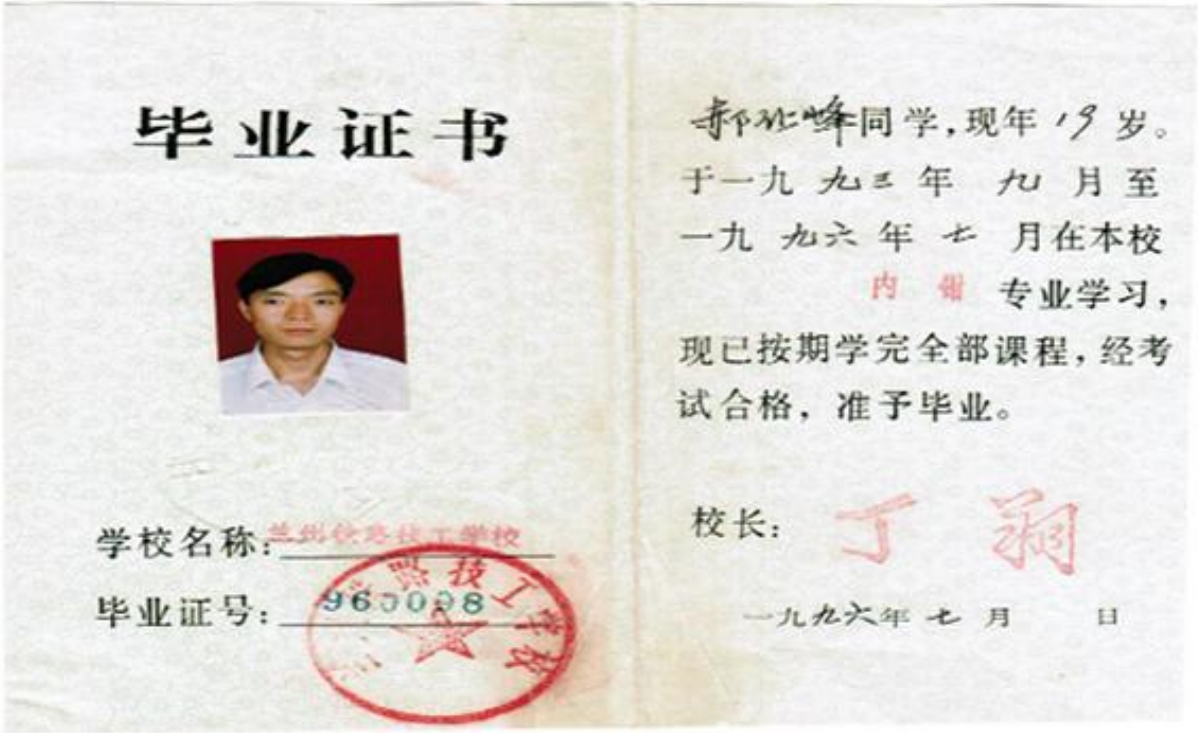 毕业证书
学校名称：兰州铁路技工学校
毕业证号：960098
路技工学校
郝 峰同学，现年19岁。
于一九九三年九月至
一九九六年七月在本校
内 专业学习，
现已按期学完全部课程，经考
试合格，准予毕业。
校长：丁翔
一九九六年七月 日